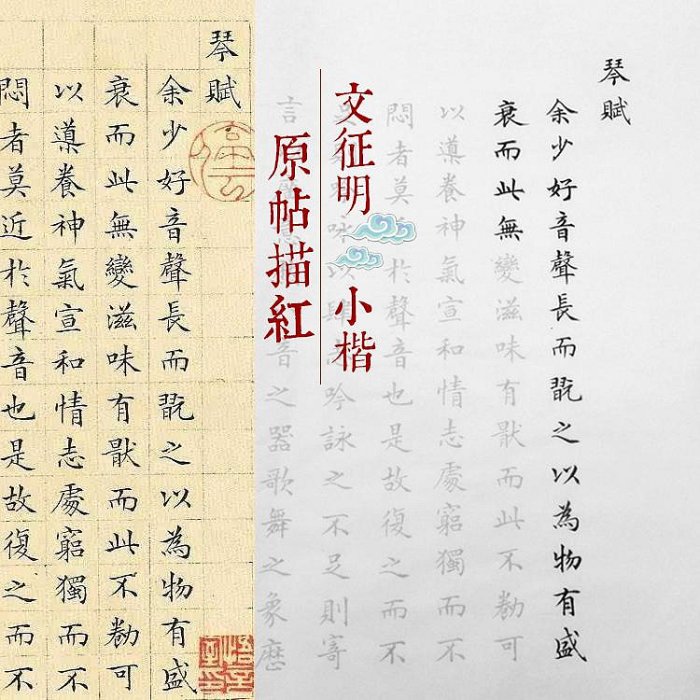 琴賦
余少好音聲長而翫之以為物有盛
衰而此無變滋味有猒而此不勌可
以導養神氣宣和情志處窮獨而不
悶者莫近於聲音也是故復之而不
文征明 小楷
原帖描紅
琴賦
余少好音聲長而翫之以為物有盛
衰而此無變滋味有猒而此不勌可
以導養神氣宣和情志處窮獨而不
悶者莫於聲音也是故復之而不
詠以吟詠之不足則寄
言音之器歌舞之象歷